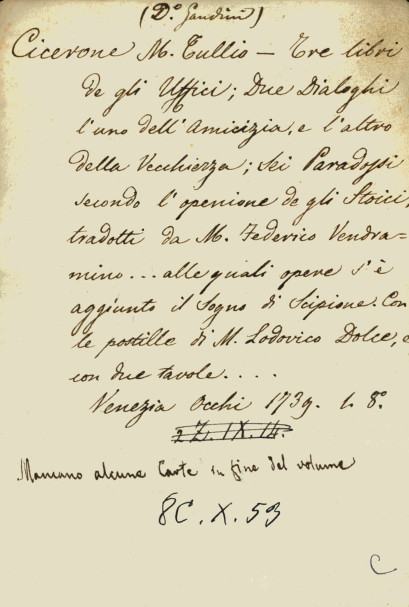 (D.º Gandini)
Cicerone M. Tullio — Tre libri
de gli Uffici; Due Dialoghi
l'uno dell'Amicizia, e l'altro
della Vecchiezza; Sei Paradossi
secondo l'openione de gli Stoici,
tradotti da M. Federico Vendra=
mino... alle quali opere s'è
aggiunto il Sogno di Scipione. Con
le postille di M. Lodovico Dolce, e
con due tavole....
Venezia Occhi 1739. 1. 8.º
2 Z. IX. 14.
Mancano alcune Carte in fine del volume
8C. X. 53
C